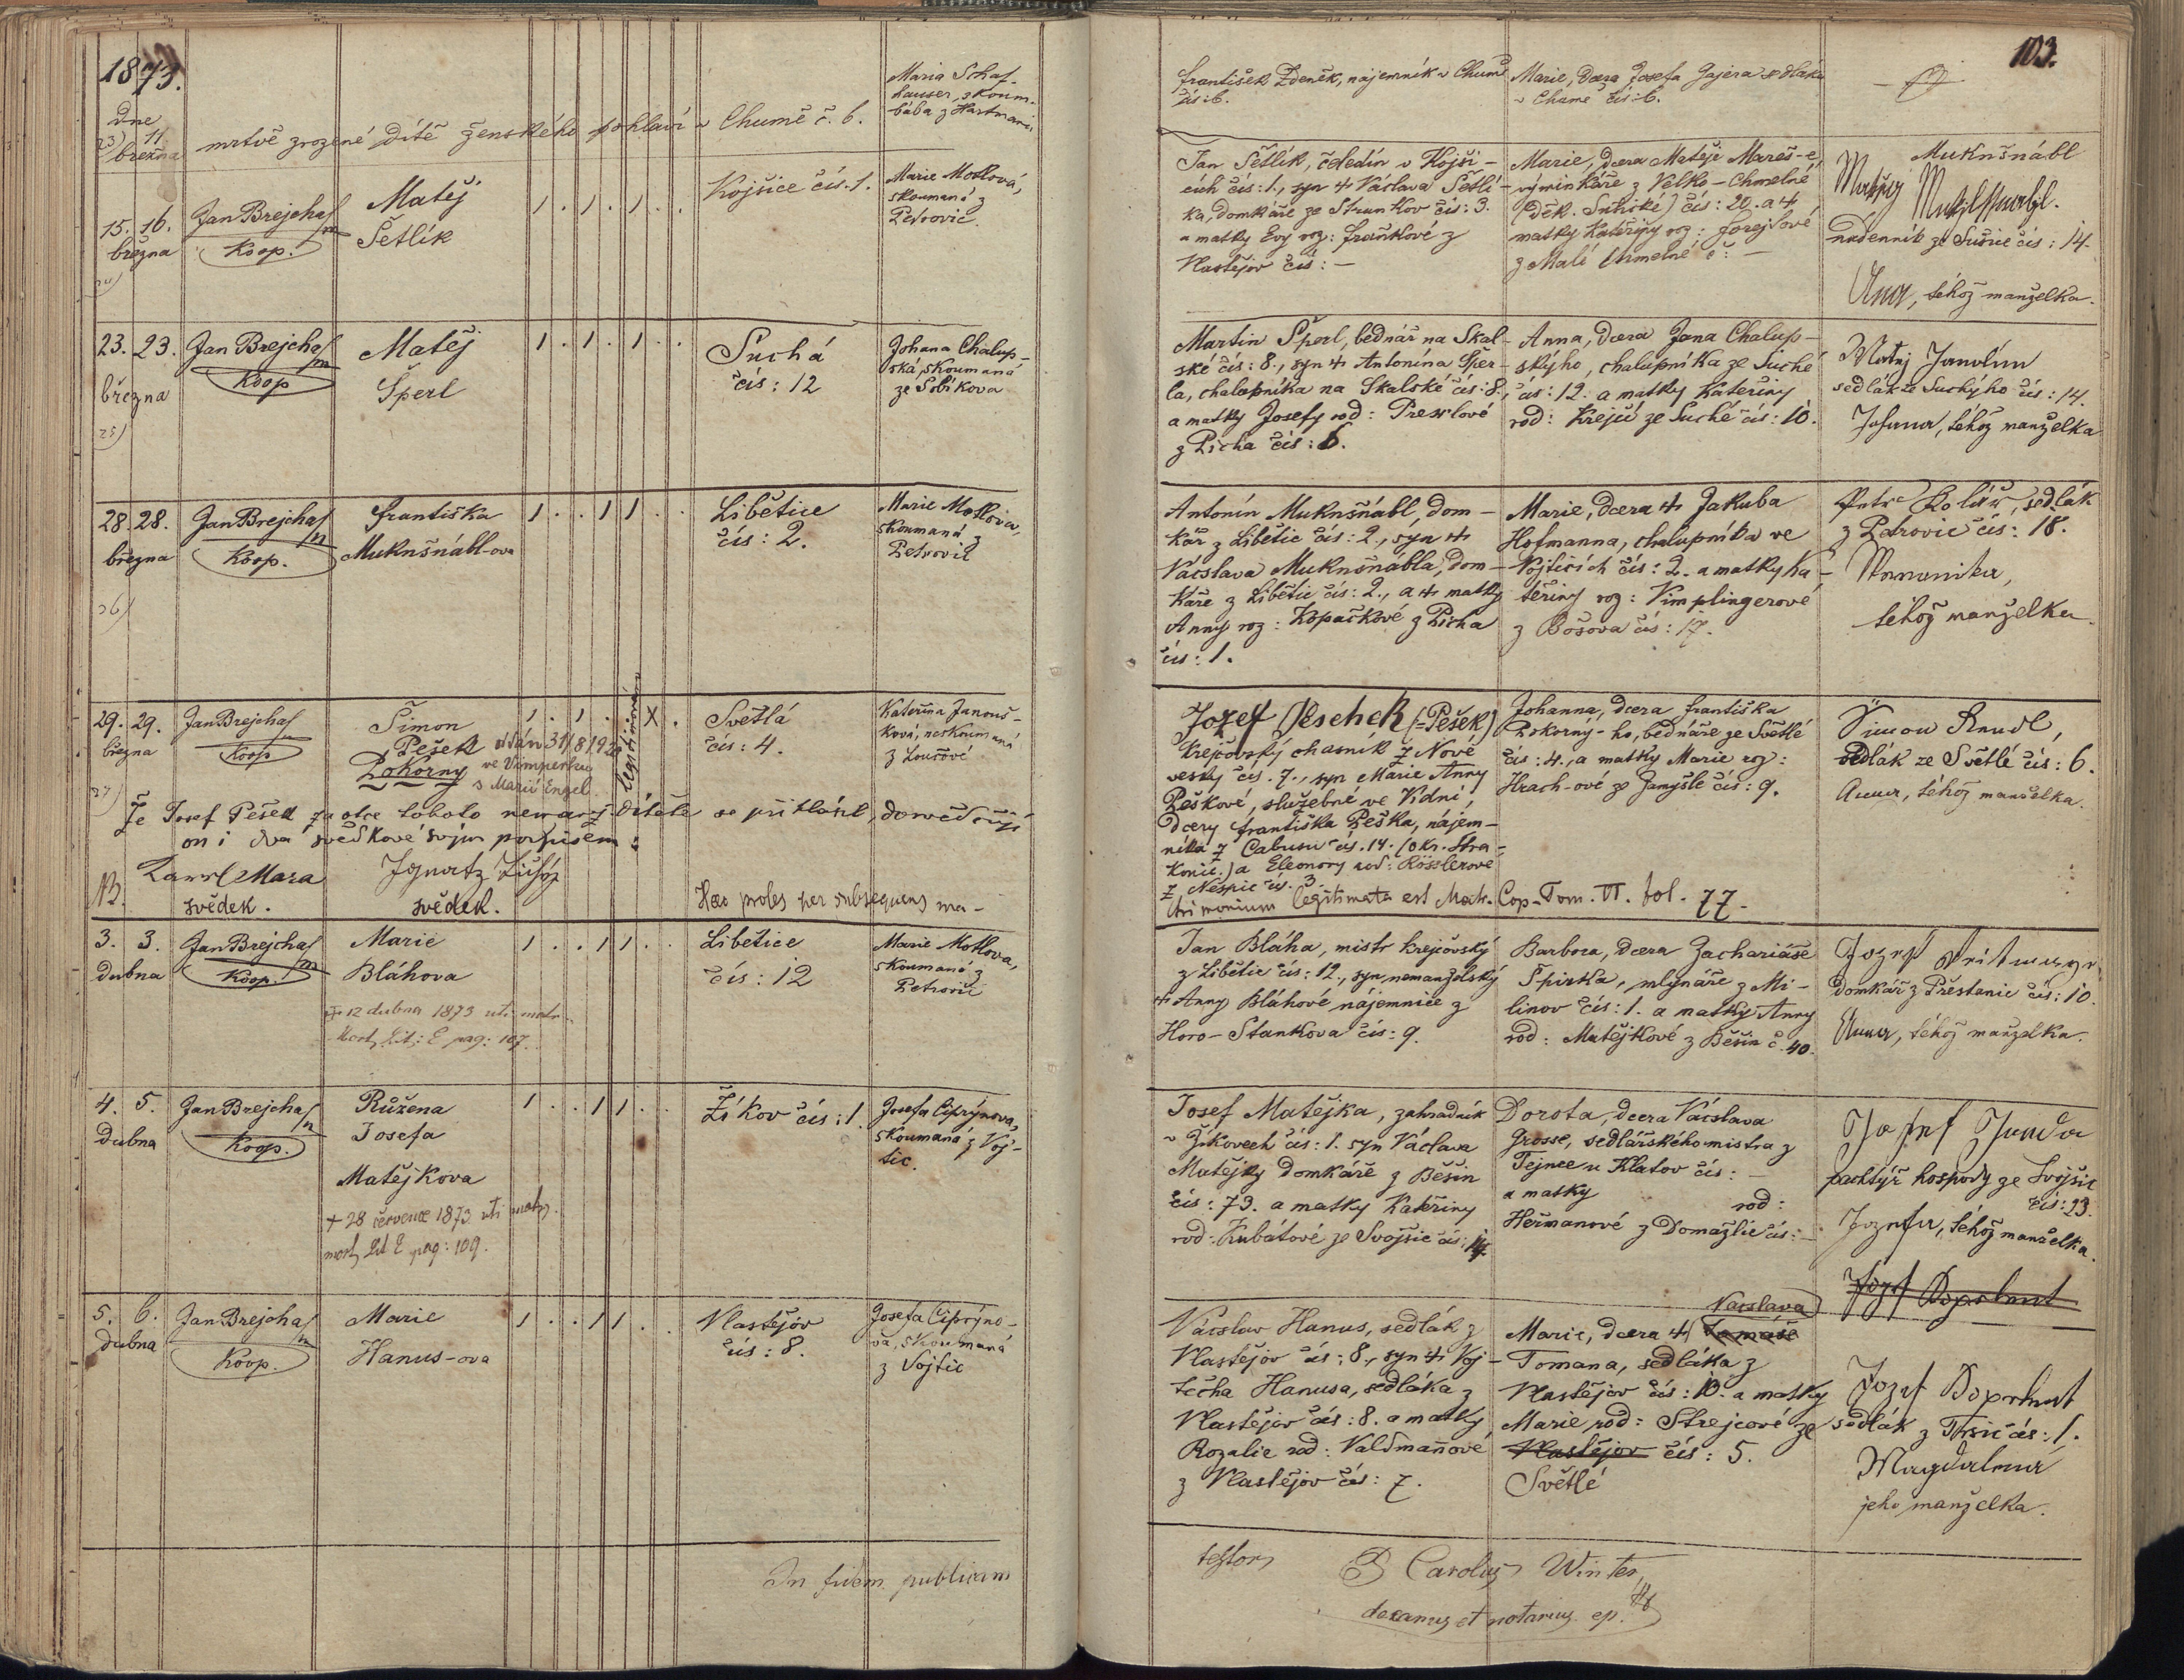 1873.
103.
Dne
11
března
mrtvě zrozené dítě ženského pohlaví v Chumě č. 6.
Maria Schaf-
hauser, zkoum.
bába z Hartmanic
František Zdeněk, nájemník v Chumě
čís: 6.
Marie, dcera Josefa Gajera sedláka
v Chumě čís: 6.
15. 16.
března
Jan Brejcha
Koop.
Matěj
Šetlík
1 . 1 . 1 . .
Kojšice čís. 1.
Marie Motlová,
skoumaná z
Petrovic
Jan Šetlík, čeledín v Kojši-
cích čís: 1., syn + Václava Šetlí-
ka, domkáře ze Strunkov čís: 3.
a matky Evy roz: Fraňkové z
Vlastějov čís: —
Marie, dcera Matěje Mareš-e,
výminkáře z Velko-Chmelné
(děk. Sušické) čís: 20. a +
matky Kateřiny roz: Forejtové
z Malé Chmelné č: —
Muknšnábl
Matěj
nádenník ze Sušice čís: 14.
Anna, téhož manželka.
23. 23.
března
25)
Jan Brejcha
Koop
Matěj
Šperl
1 . 1 . 1 . .
Suchá
čís: 12
Johana Chalup-
ská, skoumaná
ze Sobikova
Martin Šperl, bednář na Skal-
ské čís: 8., syn + Antonína Šper-
la, chalupníka na Skalské čís: 8.,
a matky Josefy rod: Presslové
z Pícha čís: 6.
Anna, dcera Jana Chalup-
skýho, chalupníka ze Suché
čís: 12. a matky Kateřiny
rod: Krejčí ze Suché čís: 10.
Matěj Janolím
sedlák ze Suchýho čís: 14.
Johana, téhož manželka
28. 28.
března
26)
Jan Brejcha
Koop.
Františka
Muknšnábl-ova
1 . . 1 1 . .
Libětice
čís: 2.
Marie Motlova,
skoumaná z
Petrovic
Antonín Muknšnábl, dom-
kář z Libětic čís: 2., syn +
Václava Muknšnábla, dom-
káře z Libětic čís: 2., a + matky
Anny roz: Kopačkové z Pícha
čís: 1.
Marie, dcera + Jakuba
Hofmanna, chalupníka ve
Vojticích čís: 2. a matky Ka-
teřiny roz: Vimplingerové
z Bošova čís: 17.
Petr Kolář, sedlák
z Petrovic čís: 18.
téhož manželka.
29. 29.
března
27)
Jan Brejcha
Koop
Šimon
Pešek
Pokorny
oddán 31/8 192
ve Vimperku
s Marií Engel.
1 . 1 . X .
legitimován
Světlá
čís: 4.
Kateřina Janouš-
ková, neskoumaná
z Loučové
Jozef Peschek (=Pešek)
krejčovský chasník z Nové
vesky čís. 7., syn Marie Anny
Peškové, služebné ve Kdni,
dcery Františka Peška, nájem-
níka z Cabusu čís. 14. (okr. Stra-
konic.) a Eleonory rod: Rösslerové
z Nespic čís. 3.
Johanna, dcera Františka
Pokorný-ho, bednáře ze Světlé
čís: 4., a matky Marie roz:
Hrach-ové ze Zamyšle čís: 9.
Šimon Randl,
sedlák ze Světlé čís: 6.
Anna, téhož manželka.
Že Josef Pešek za otce tohoto nemanž. dítěte se přihlásil, dosvědčují
on i dva svědkové svým podpisem:
Karel Mara
svědek.
Ignatz
svědek.
NB.
Haec proles per subsequens ma-
trimonium legitimata est Matr. Cop. Tom. VI. fol. 77.
3. 3.
dubna
Jan Brejcha
Koop.
Marie
Bláhova
+ 12 dubna 1873 uti matr.
Mort. Lit: E pag: 107.
1 . . 1 1 . .
Liběticé
čís: 12
Marie Motlova,
skoumaná z
Petrovic
Jan Bláha, mistr krejčovský
z Libětic čís: 12., syn nemanželský
+ Anny Bláhové nájemnice z
Horo-Stankova čís: 9.
Barbora, dcera Zachariáše
Spirka, mlynáře z Mi-
linov čís: 1. a matky Anny
rod: Matějkové z Běšin č. 40.
Jozef
domkář z Přestanic čís: 10.
Anna, téhož manželka.
4. 5.
Dubna
Jan Brejcha
Koop.
Růžena
Josefa
Matějkova
+ 28 července 1873 uti matr.
mort. Lit E pag: 109.
1 . . 1 1 . .
Žíkov čís: 1.
Josefa Ciprýnova,
skoumaná z Voj-
tic.
Josef Matějka, zahradník
v Žíkovech čís: 1. syn Václava
Matějky domkáře z Běšin
čís: 73. a matky Kateřiny
rod: Kubátové ze Svojšic čís: 14.
Dorota, dcera Václava
Grosse, sedlářského mistra z
Tejnce u Klatov čís: —
a matky rod:
Heřmanové z Domažlic čís: —
Josef Janda
pachtýř hospody ze Svojšic
čís: 23.
Jozefa, téhož manželka.
Jozef Doprlmut
5. 6.
dubna
Jan Brejcha
Koop.
Marie
Hanus-ova
1 . . 1 1 . .
Vlastějov
čís: 8.
Josefa Ciprýno-
va, skoumaná
z Vojtic
Václav Hanus, sedlák z
Vlastějov čís: 8., syn + Voj-
těcha Hanusa, sedláka z
Vlastějov čís: 8. a matky
Rozalie rod: Valdmaňové
z Vlastějov čís: 7.
Václava
Marie, dcera + Tomáše
Tomana, sedláka z
Vlastějov čís: 10. a matky
Marie, rod: Strejcové ze
Vlastějov čís: 5.
Světlé
Jozef Doprlmut
sedlák z Trsic čís: 1.
Magdalena
jeho manželka.
In fidem publicam
testor
P Carolus Winter,
decanus et notarius ep.